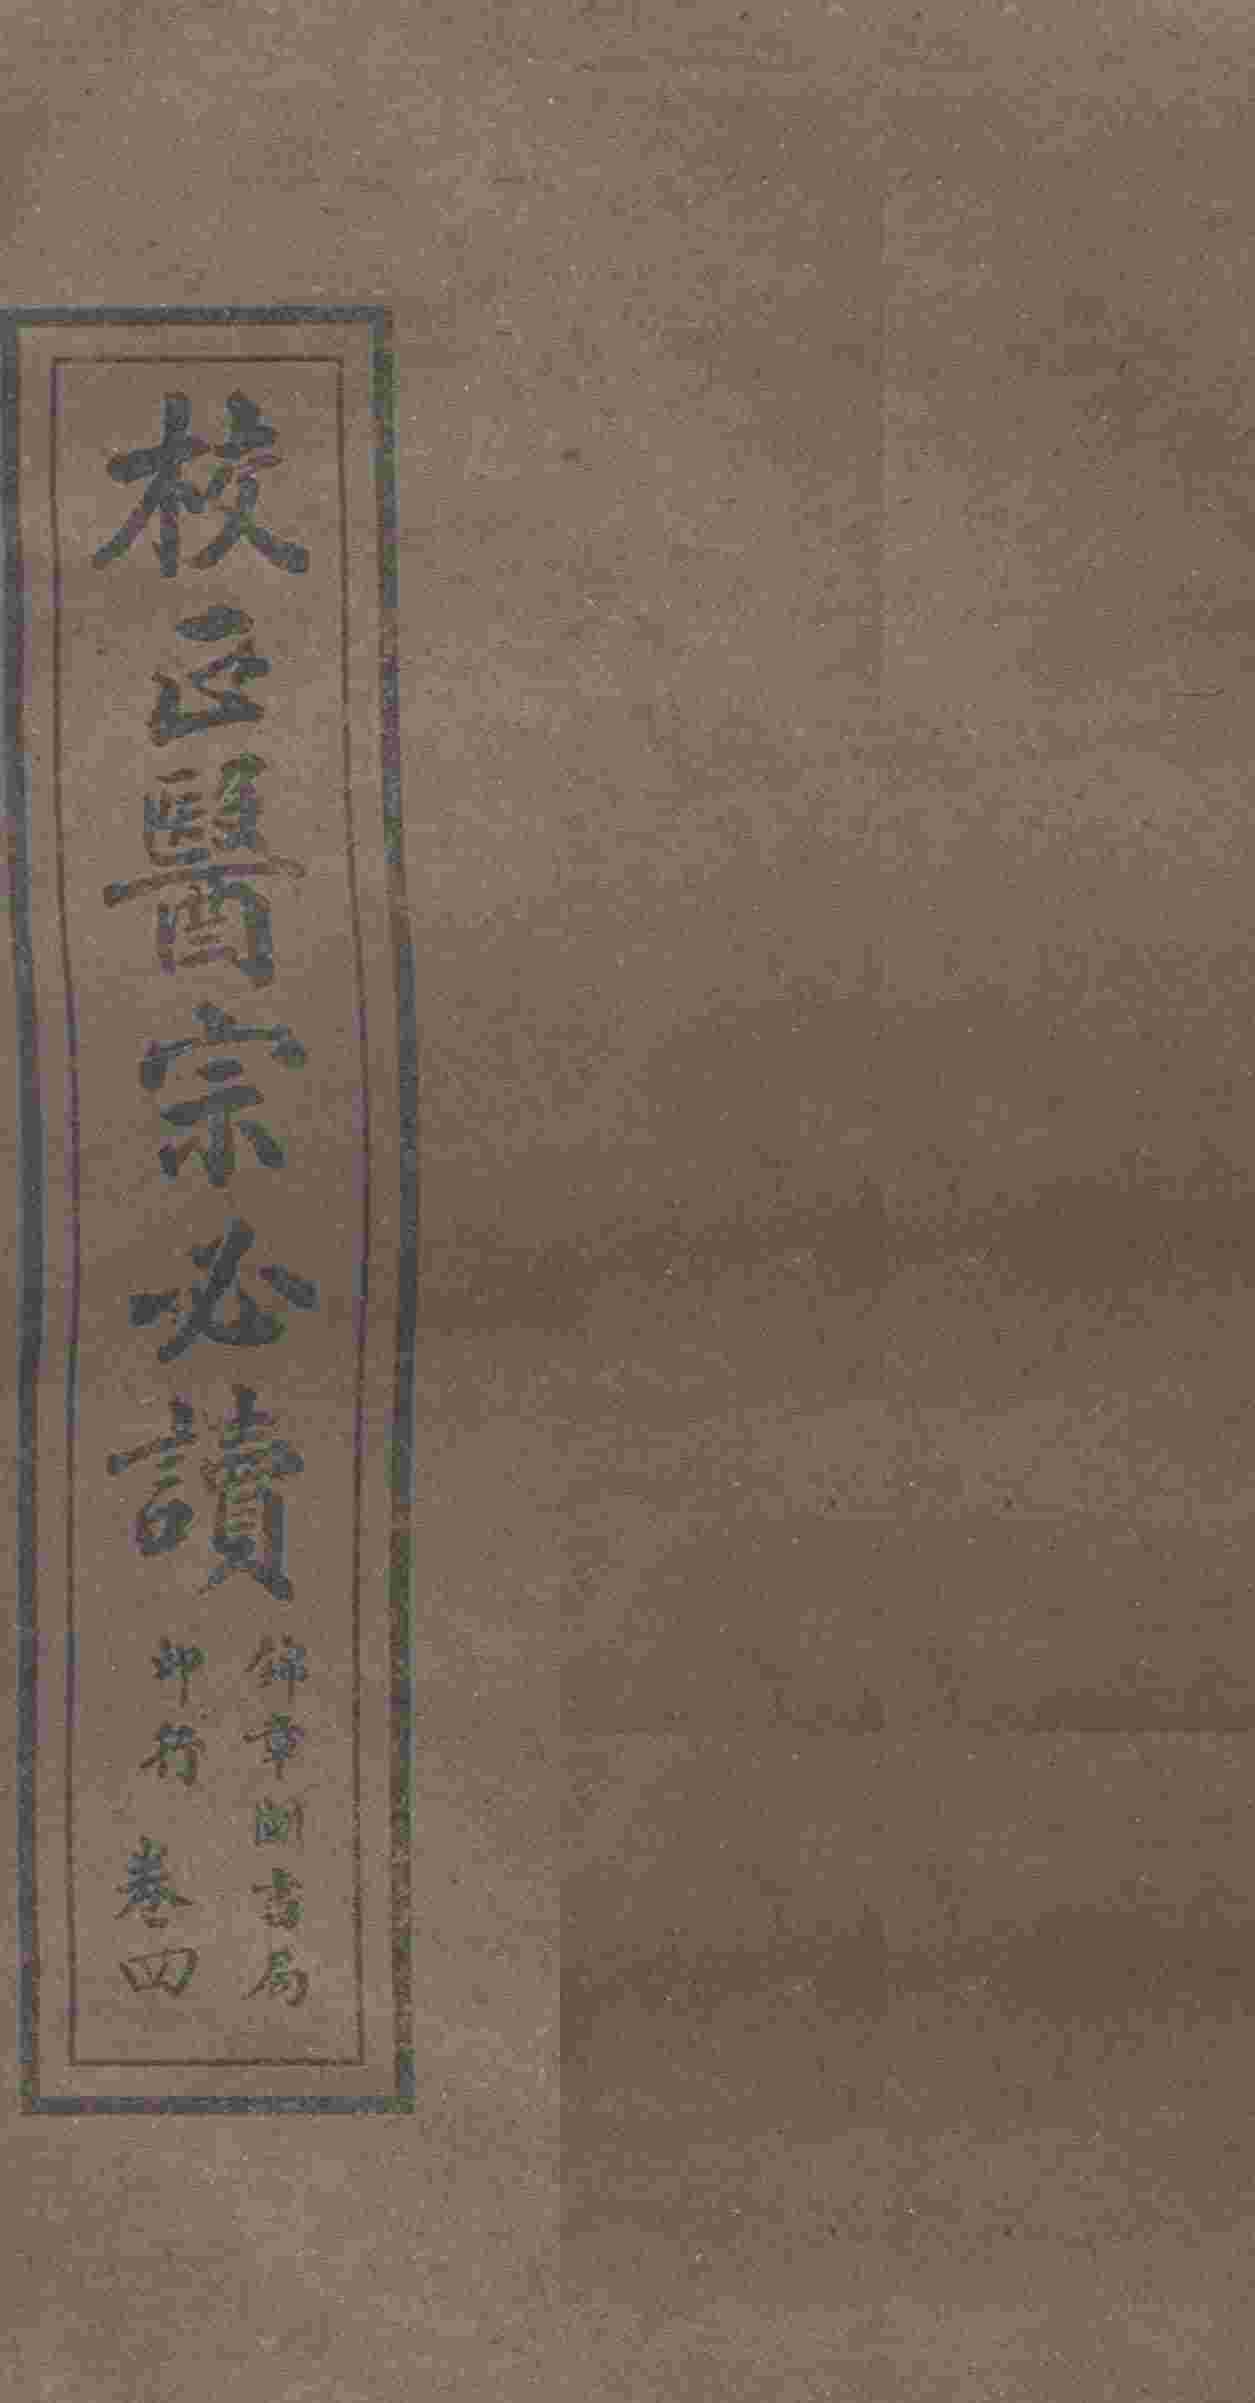 校正醫宗必讀
錦章圖書局
印行
卷四